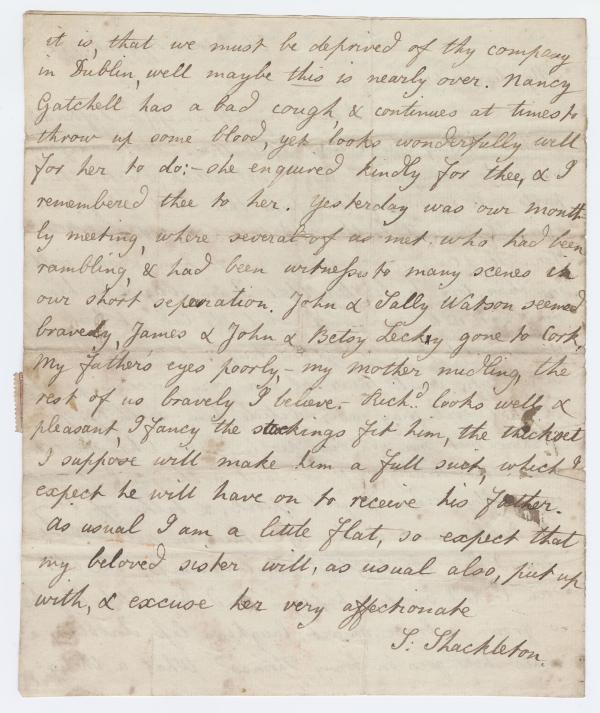 it is, that we must be deprived of thy company
in Dublin, well maybe this is nearly over. Nancy
Gatchell has a bad cough, & continues at times to
throw up some blood, yet looks wonderfully well
for her to do:- she enquired kindly for thee, & I
remembered thee to her. Yesterday was our month
ly meeting, where several of us met who had been
rambling, & had been witnesses to many scenes in
our short seperation. John & Sally Watson seemed
bravely, James & John & Betsy Lecky gone to Cork,
My father's eyes poorly,- my mother midling, the
rest of us bravely I believe.- Richd. looks well &
pleasant, I fancy the stockings fit him, the thickset
I suppose will make him a full suit, which I
expect he will have on to receive his father.
As usual I am a little flat, so expect that
my beloved sister will, as usual also, put up
with, & excuse her very affectionate
S: Shackleton.